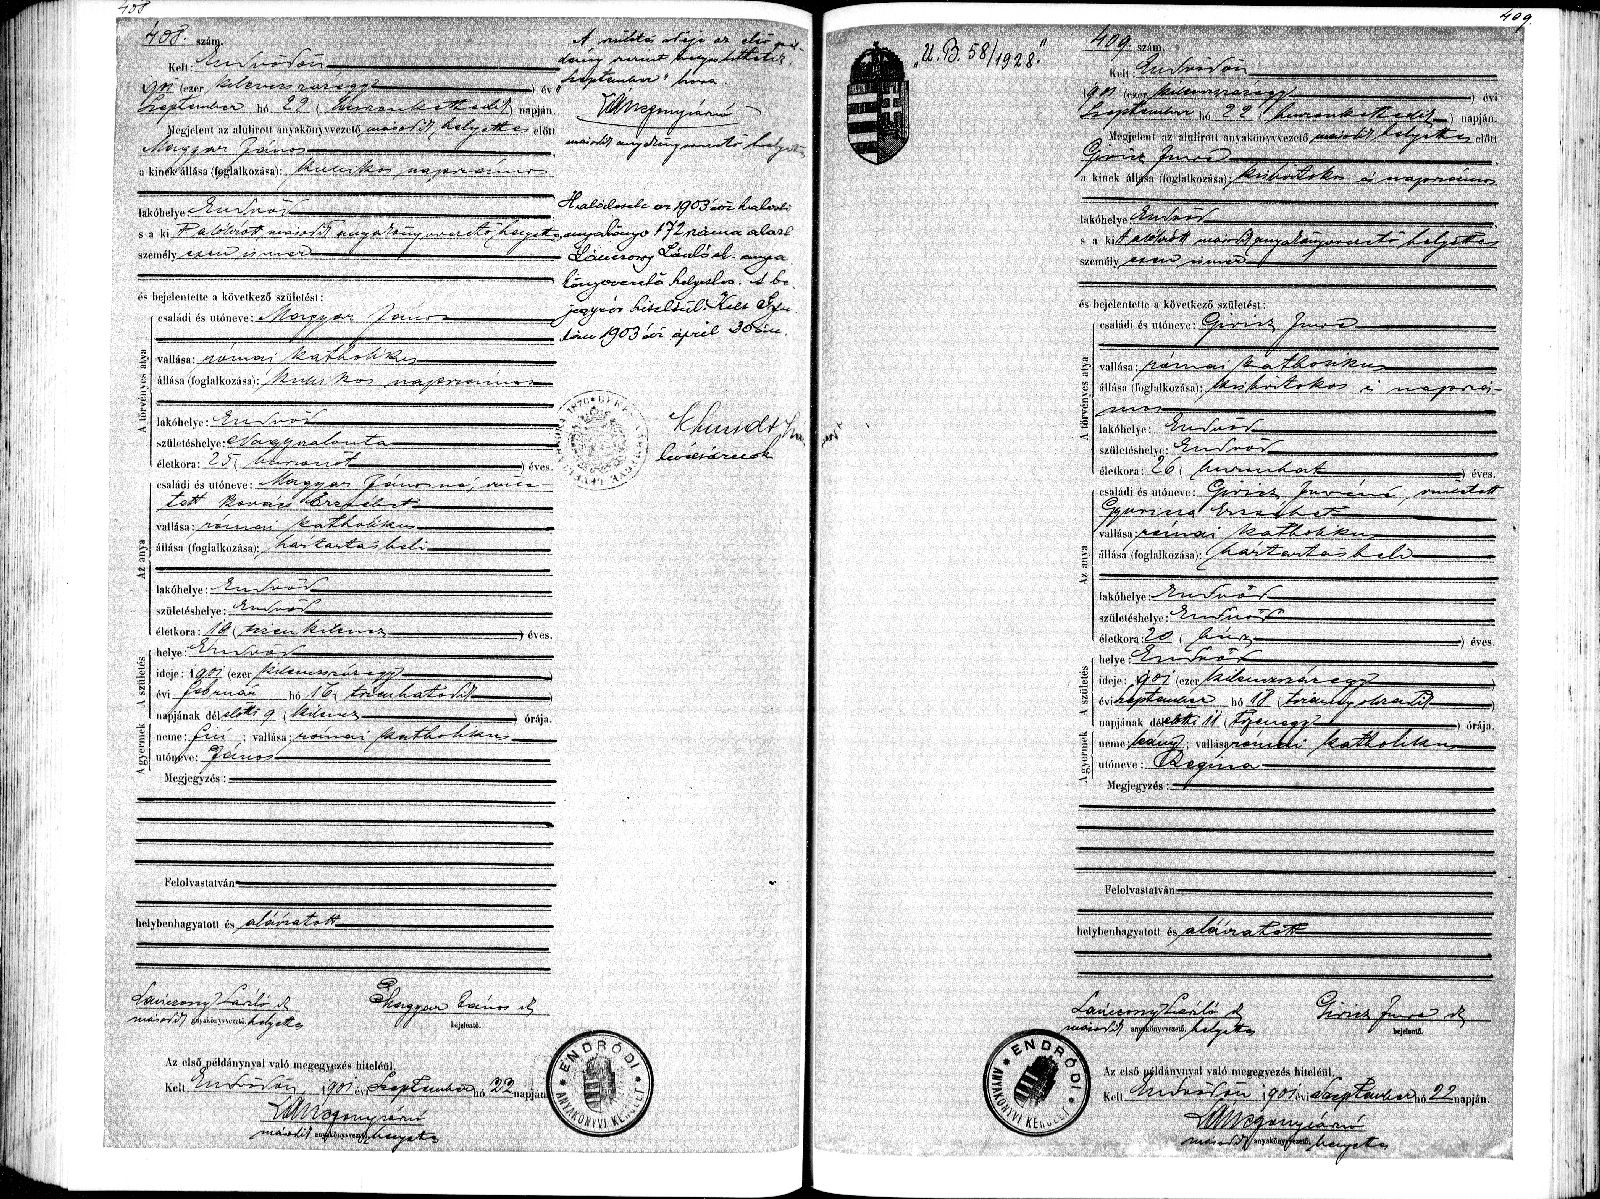 408
408. szám.
Kelt: Endrődön
901 (ezer kilencszázegy ) évi
Szeptember hó 22 (huszonkettedik) napján
Megjelent az alulirott anyakönyvvezető második helyettes előtt
Magyar János
a kinek állása (foglalkozása): kubikos napszámos
lakóhelye Endrőd
s a ki t alólirott második anyakönyvvezető helyettes
személy esen ismer
és bejelentette a következő születést:
A törvényes atya
családi és utóneve: Magyar János
vallása: római katholikus
állása (foglalkozása): kubikos napszámos
lakóhelye: Endrőd
születéshelye: Nagyszalonta
életkora: 25 ( huszonöt ) éves.
Az anya
családi és utóneve: Magyar Jánosné, szüle-
tett Kovács Erzsébet
vallása: római katholikus
állása (foglalkozása): háztartásbeli
lakóhelye: Endrőd
születéshelye: Endrőd
életkora: 19 ( tizenkilencz ) éves.
A születés
helye: Endrőd
ideje: 1901 (ezer kilencszázegy )
évi február hó 16 ( tizenhatodik )
napjának délelőtti 9 ( kilencz ) órája.
A gyermek
neme: fiú ; vallása: római katholikus
utóneve: János
Megjegyzés:
Felolvastatván
helybenhagyatott és aláiratott
Lánczony László sk
második anyakönyvvezető helyettes
Magyar János sk
bejelentő.
Az első példánynyal való megegyezés hiteléül
Kelt Endrődön 1901 évi Szeptember hó 22 napján
második anyakönyvvezető helyettes
ENDRŐDI ANYAKÖNYVI KERÜLET
A születés ideje az első pél-
dány szerint
Szeptember" hava
második anyakönyvvezető helyettes
Haláleset az 1903 évi halotti
anyakönyv 172 száma alatt
Lánczony László sk. anya
könyvvezető helyettes. A be
jegyzés hiteléül: Kelt Gyu
lán 1903 évi április 30án.
409.
"U. B. 58/1928."
409 szám.
Kelt Endrődön
901 (ezer kilencszázegy ) évi
Szeptember hó 22 (huszonkettedik ) napján.
Megjelent az alulirott anyakönyvvezető második helyettes előtt
Giricz Imre
a kinek állása (foglalkozása): kisbirtokos és napszámos
lakóhelye Endrőd
s a ki t alólirott második anyakönyvvezető helyettes
személy esen ismer
és bejelentette a következő születést:
A törvényes atya
családi és utóneve: Giricz Imre
vallása: római katholikus
állása (foglalkozása): kisbirtokos és napszá-
mos
lakóhelye: Endrőd
születéshelye: Endrőd
életkora: 26 ( huszonhat ) éves.
Az anya
családi és utóneve: Giricz Imréné, született
Gyuricza Erzsébet
vallása: római katholikus
állása (foglalkozása): háztartásbeli
lakóhelye: Endrőd
születéshelye: Endrőd
életkora: 20 ( húsz ) éves
A születés
helye: Endrőd
ideje: 901 (ezer kilencszázegy )
évi Szeptember hó 18 (tizennyolczadik )
napjának délelőtti 11 ( tizenegy ) órája.
A gyermek
neme leány ; vallása római katholikus
utóneve: Regina
Megjegyzés:
Felolvastatván
helybenhagyatott és aláiratott
Lánczony László sk
második anyakönyvvezető, helyettes
Giricz Imre sk
bejelentő.
Az első példánynyal való megegyezés hiteléül.
Kelt Endrődön 1901 évi Szeptember hó 22 napján.
második anyakönyvvezető, helyettes
ENDRŐDI ANYAKÖNYVI KERÜLET